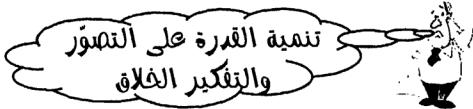 تنمية القدرة على التصوّر
والتفكير الخلاق